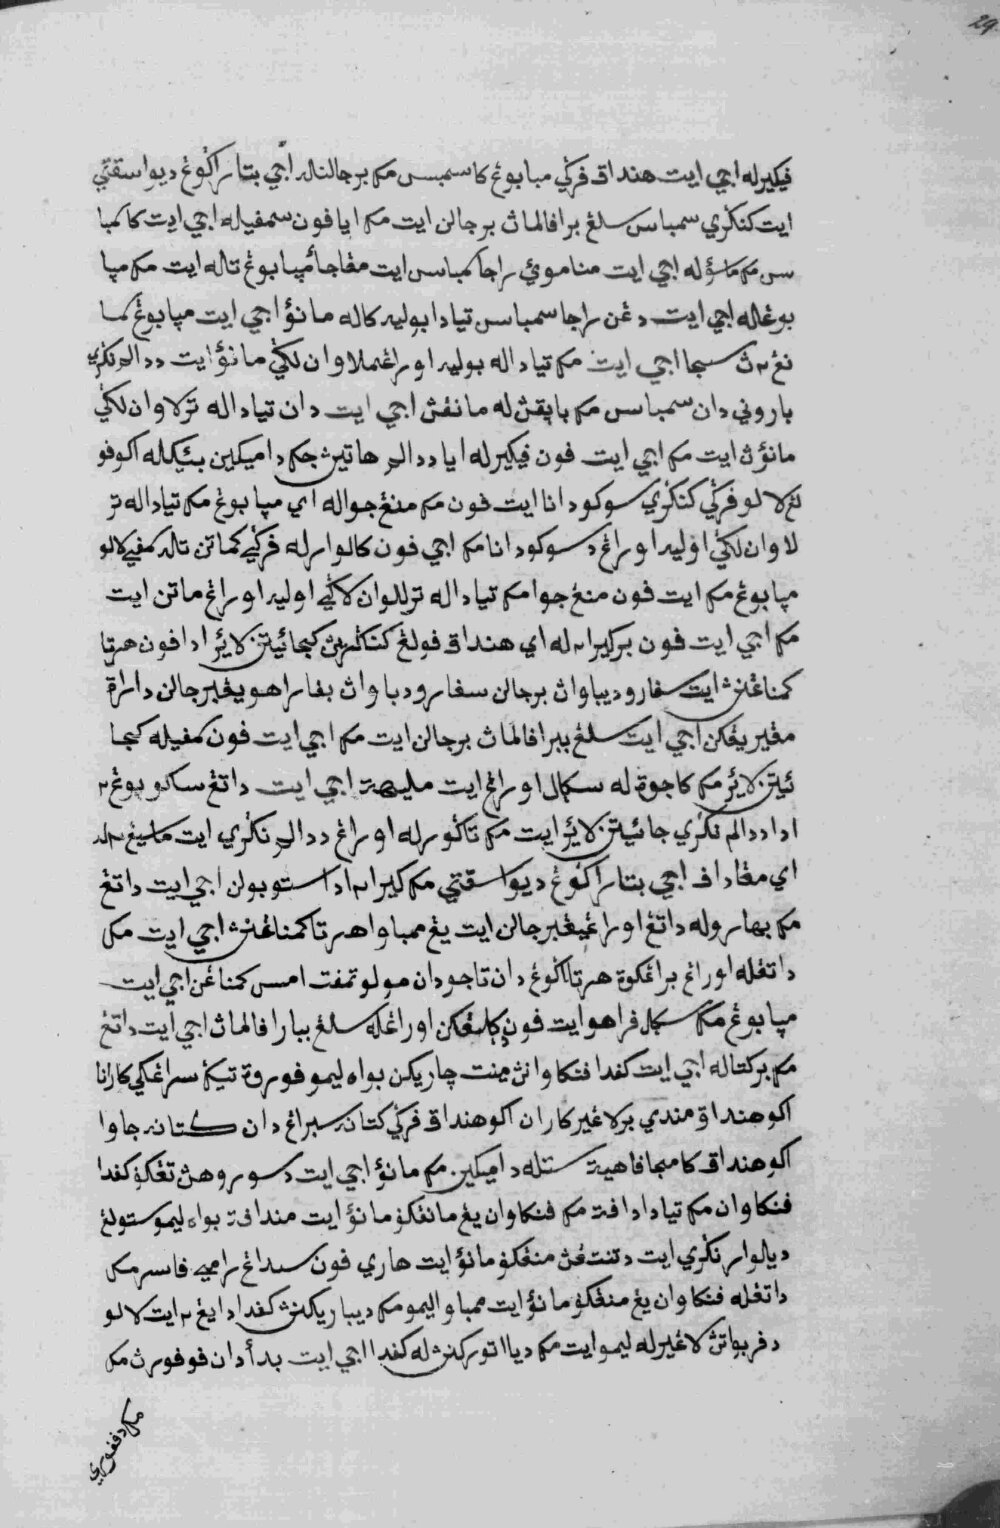 24
فيكيرله اجي ايت هنداق فركي مبابوغ كاسمبس مك برجالنله اجي بتارا ݢوڠ ديواسقتي
ايت كنݢري سمباس سلڠ برافالماڽ برجالن ايت مك اياڤون سمڤيله اجي ايت كاكمبا
س مك ماسؤله اجي ايت منامو راجا كمباس ايت مڠاجا مڽابوڠ تاله ايت مك مڽا
بوڠاله اجي ايت دڠن راجا سمباس تيادا بوليه كاله مانؤ اجي ايت مڽابوڠ كما
نڠ٢ڽ سجا اجي ايت مك تياداله بوليه اورڠ ملاوان لݢي مانؤ ايت ددالم نݢري
باروني دان سمباس مك بايقڽله مانڠڽ اجي ايت دان تياداله ترلاوان لݢي
مانؤڽ ايت مك اجي ايت ڤون فيكيرله ايا ددالم هاتيڽ جك دميكين بايكله اكو ڤو
لڠ لالو ڤركي كنݢري سوكودانا ايت ڤون مك منڠجواله اي مڽابوڠ مك تياداله تر
لاوان لݢي اوليه اورڠ دسوكودانا مك اجي ڤون كالوارله ڤركي كماتن تاله كمڤي لالو
مڽابوڠ مك ايت ڤون منڠجوا مك تياداله ترلاوان لاݢي اوليه اورڠ ماتن ايت
مك اجي ايت ڤون بركيرا٢له اي هنداق ڤولڠ كنݢريڽ كجاڠيتن لاير ادا ڤون هرتا
كمناڠنڽ ايت سڤارو ديباواڽ برجالن سڤارو دباواڽ بڤاراهو يڠ برجالن دارة
مڠيريڠكن اجي ايت سلڠ ببرافالماڽ برجالن ايت مك اجي ايت ڤون كمڤيله كجا
ڠيتن لاير مك كاجوتله سكل اورڠ ايت مليهت اجي ايت داتڠ سكو بوڠ٢
ادا ددالم نݢري جاڠيتن لاير ايت مك تاكورله اورڠ ددالم نݢري ايت ماسيڠ٢له
اي مڠادڤ اجي بتارا ݢوڠ ديواسقتي مك كيرا٢ ادا ستو بولن اجي ايت داتڠ
مك بهارو له داتڠ اورڠ يڠ برجالن ايت يڠ ممباوا هرتا كمناڠنڽ اجي ايت مك
داتڠله اورڠ براڠكوة هرتا اݢوڠ دان تاجو دان مولو تمڤت امس كمناڠن اجي ايت
مڽابوڠ مك سكل ڤراهو ايت ڤون اورڠله سلڠ ببارافالماڽ اجي ايت داتڠ
مك بركتاله اجي ايت كڤدا ڤنكاوانڽ مينت چاريكن بواه ليمو ڤوروة تيݢ سراڠكي كارانا
اكو هنداق مندي برلاڠير كاران اكو هنداق ڤركي كتانه سبراڠ دان كتانه جاوا
اكو هنداق كامجاڤاهية ستله دميكين مك مانؤ اجي ايت دسوروهڽ تڠكڤ كڤدا
ڤنكاوان مك تيادا داڤت مك ڤنكاوان يڠ مانڠكڤ مانؤ ايت منداڤة بواه ليمو ستولڠ
ديلوار نݢري ايت دتنتڠڽ منڠكڤ مانؤ ايت هاري ڤون سداڠ رامي ڤاسر مك
داتڠله ڤنكاوان يڠ منڠكڤ مانؤ ايت ممباوا ليمو مك ديباريكنڽ كڤدا دايڠ٢ ايت لالو
دڤربواتڽ لاڠيرله ليمو ايت مك ديااتوركنڽله كڤدا اجي ايت بدأ دان ڤوڤورڽ مك
مك دڤڤوري